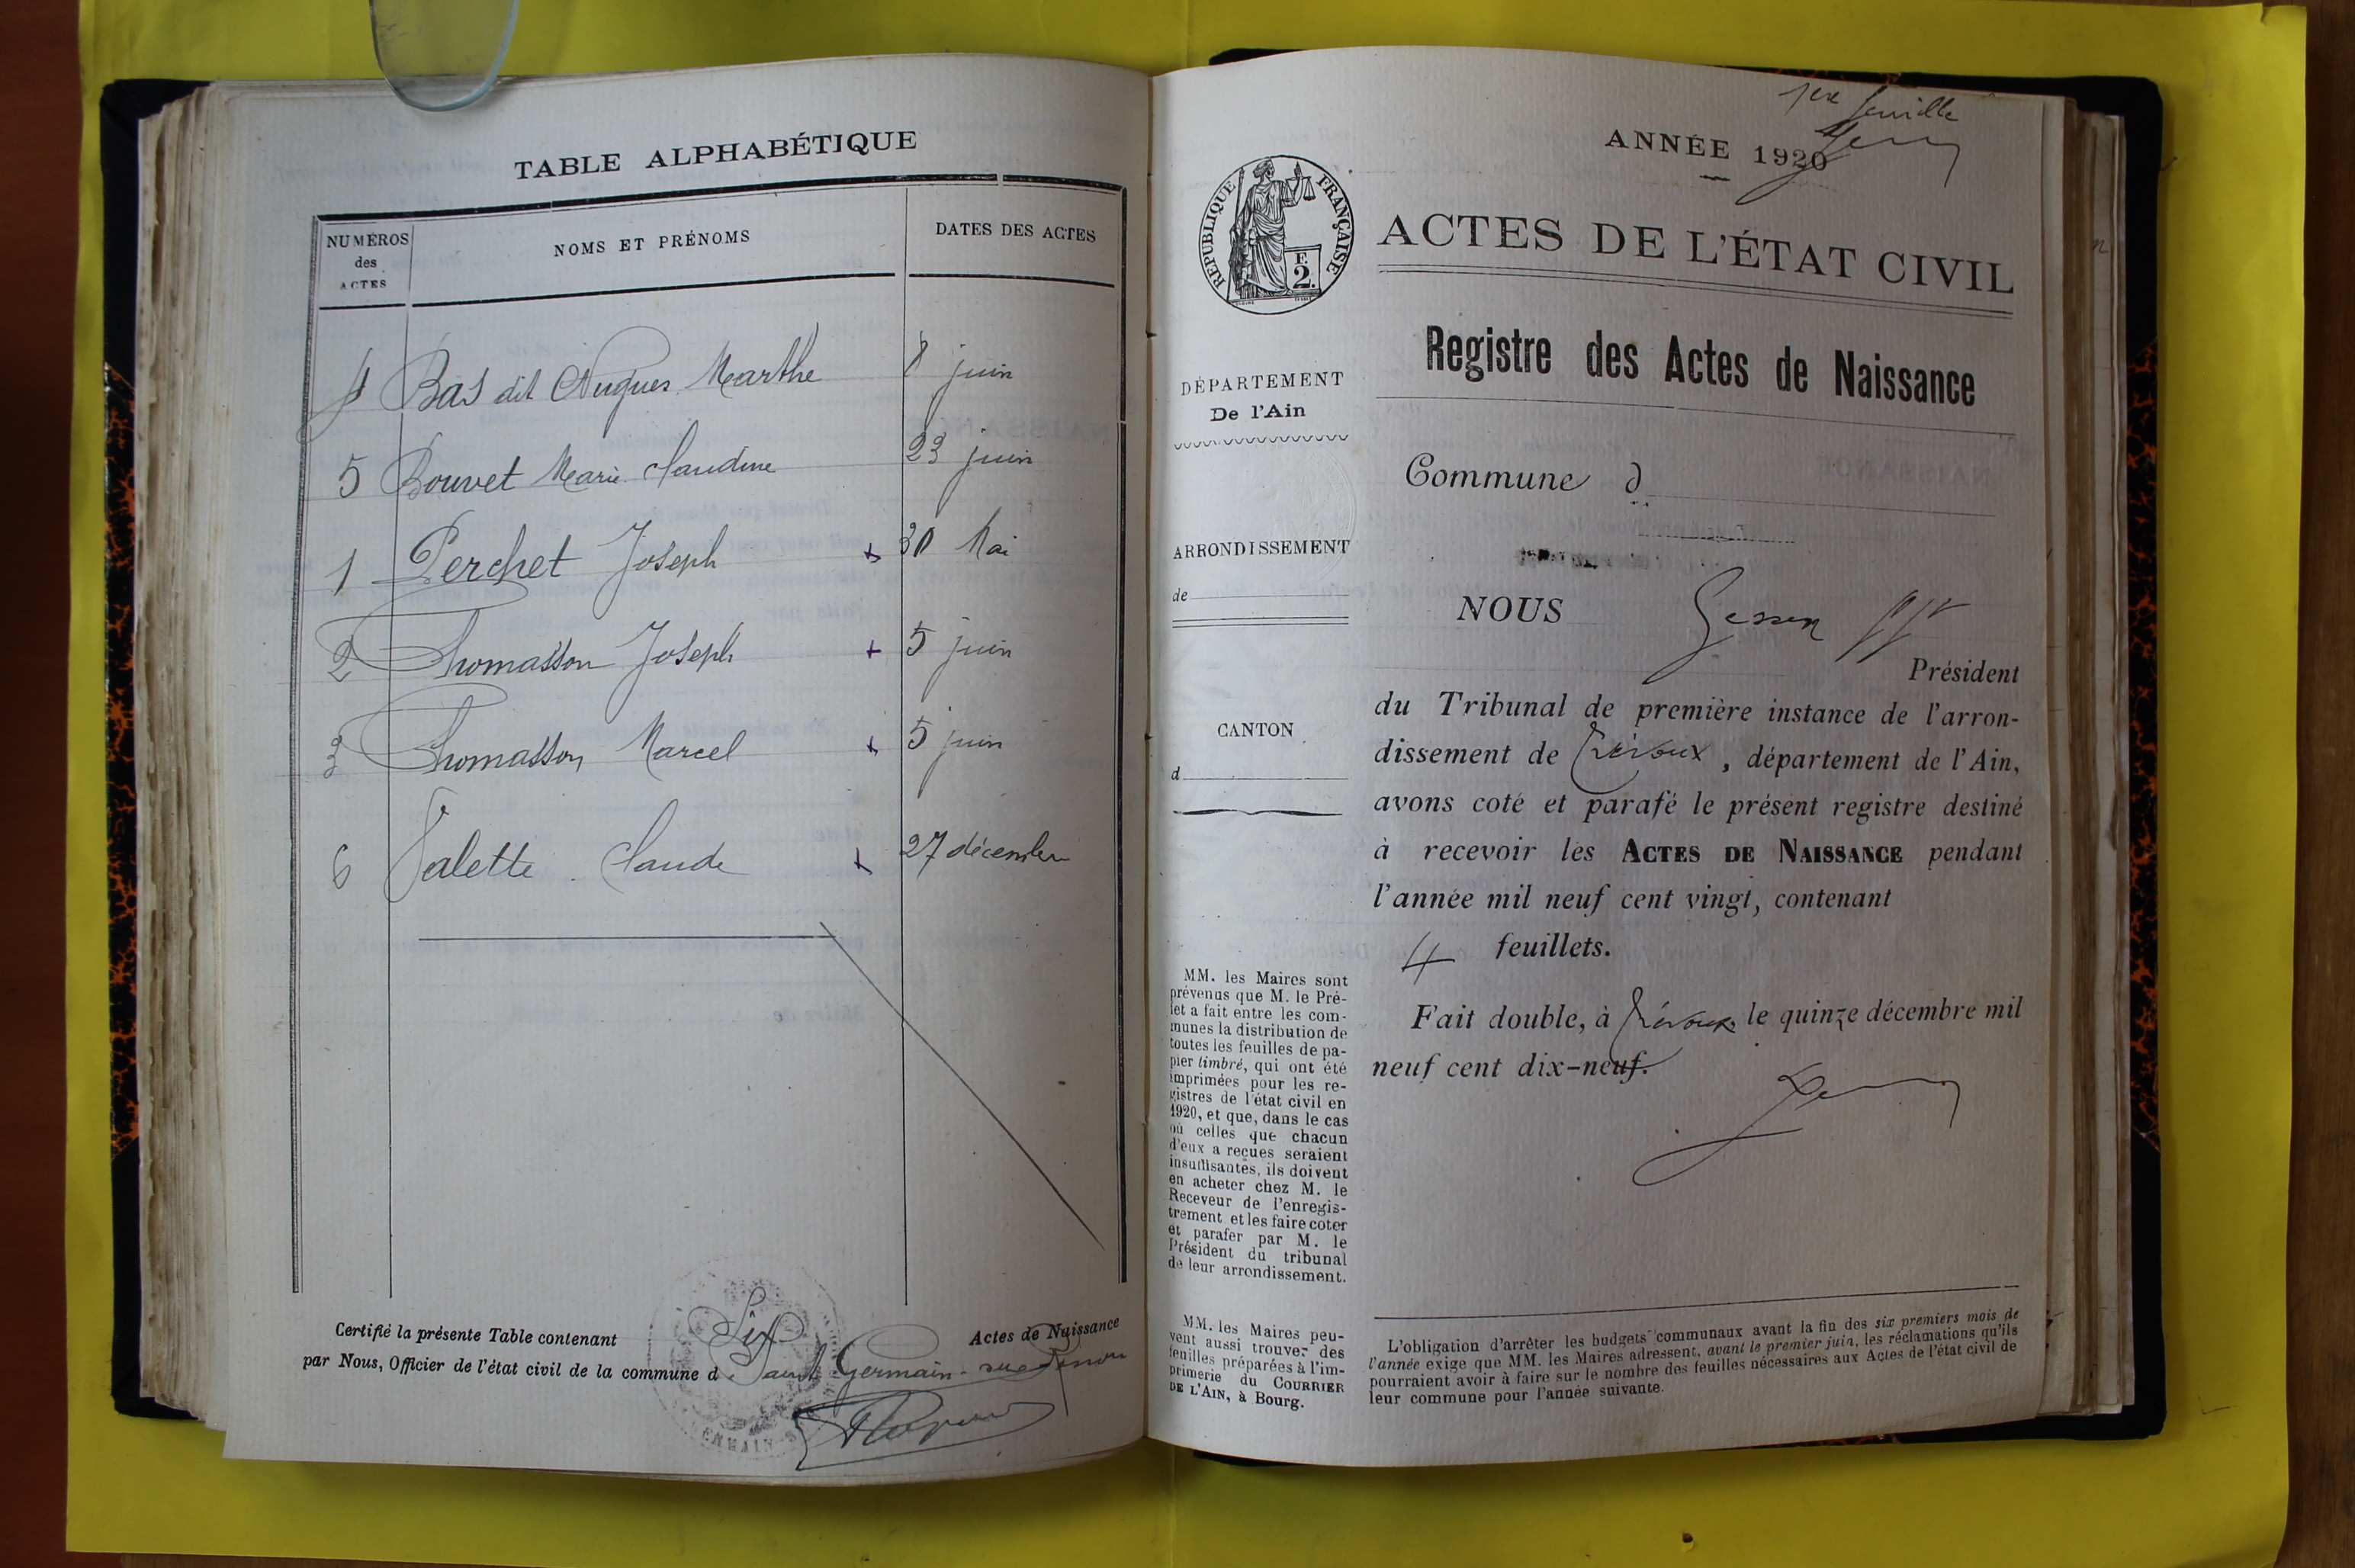 TABLE ALPHABÉTIQUE
NUMÉROS
des
ACTES
NOMS ET PRÉNOMS
DATES DES ACTES
4 Bas dit Nugues Marthe 8 juin
5 Bouvet Marie Claudine 23 juin
1 Perchet Joseph + 30 Mai
2 Thomasson Joseph + 5 juin
3 Thomasson Marcel + 5 juin
6 Valette Claude + 27 décembre
Certifié la présente Table contenant Six Actes de Naissance
par Nous, Officier de l'état civil de la commune d Saint Germain-sur-Renon
1ère feuille
ANNÉE 1920
RÉPUBLIQUE FRANÇAISE
F.
2.
ACTES DE L'ÉTAT CIVIL
Registre des Actes de Naissance
DÉPARTEMENT
De l'Ain
ARRONDISSEMENT
de
CANTON
d
Commune d
NOUS
Président
du Tribunal de première instance de l'arron-
dissement de Trévoux, département de l'Ain,
avons coté et parafé le présent registre destiné
à recevoir les ACTES DE NAISSANCE pendant
l'année mil neuf cent vingt, contenant
4 feuillets.
Fait double, à Trévoux, le quinze décembre mil
neuf cent dix-neuf.
MM. les Maires sont
prévenus que M. le Pré-
fet a fait entre les com-
munes la distribution de
toutes les feuilles de pa-
pier timbré, qui ont été
imprimées pour les re-
gistres de l'état civil en
1920, et que, dans le cas
où celles que chacun
d'eux a reçues seraient
insuffisantes, ils doivent
en acheter chez M. le
Receveur de l'enregis-
trement et les faire coter
et parafer par M. le
Président du tribunal
de leur arrondissement.
MM. les Maires peu-
vent aussi trouver des
feuilles préparées à l'im-
primerie du COURRIER
DE L'AIN, à Bourg.
L'obligation d'arrêter les budgets communaux avant la fin des six premiers mois de
l'année exige que MM. les Maires adressent, avant le premier juin, les réclamations qu'ils
pourraient avoir à faire sur le nombre des feuilles nécessaires aux Actes de l'état civil de
leur commune pour l'année suivante.